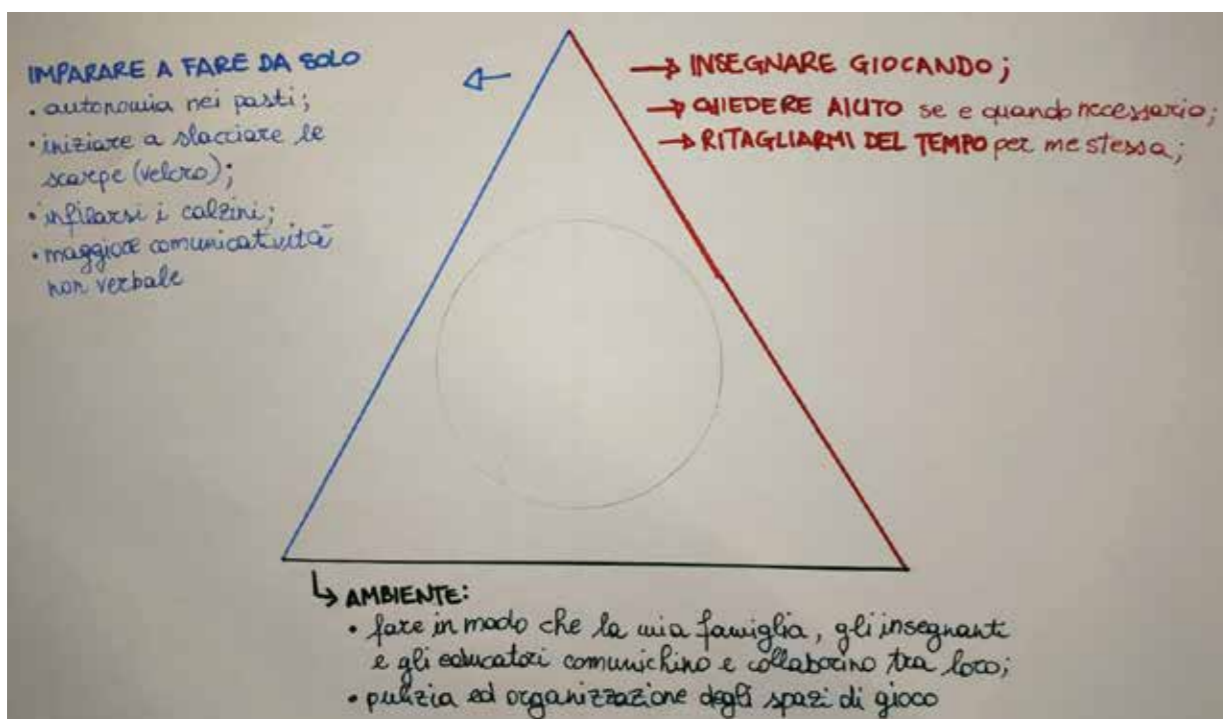 IMPARARE A FARE DA SOLO
• autonomia nei pasti;
• iniziare a slacciare le
scarpe (velcro);
• infilarsi i calzini;
• maggiore comunicatività
non verbale
→ INSEGNARE GIOCANDO;
→ CHIEDERE AIUTO se e quando necessario;
→ RITAGLIARMI DEL TEMPO per me stessa;
↳ AMBIENTE:
• fare in modo che la mia famiglia, gli insegnanti
e gli educatori comunichino e collaborino tra loro;
• pulizia ed organizzazione degli spazi di gioco